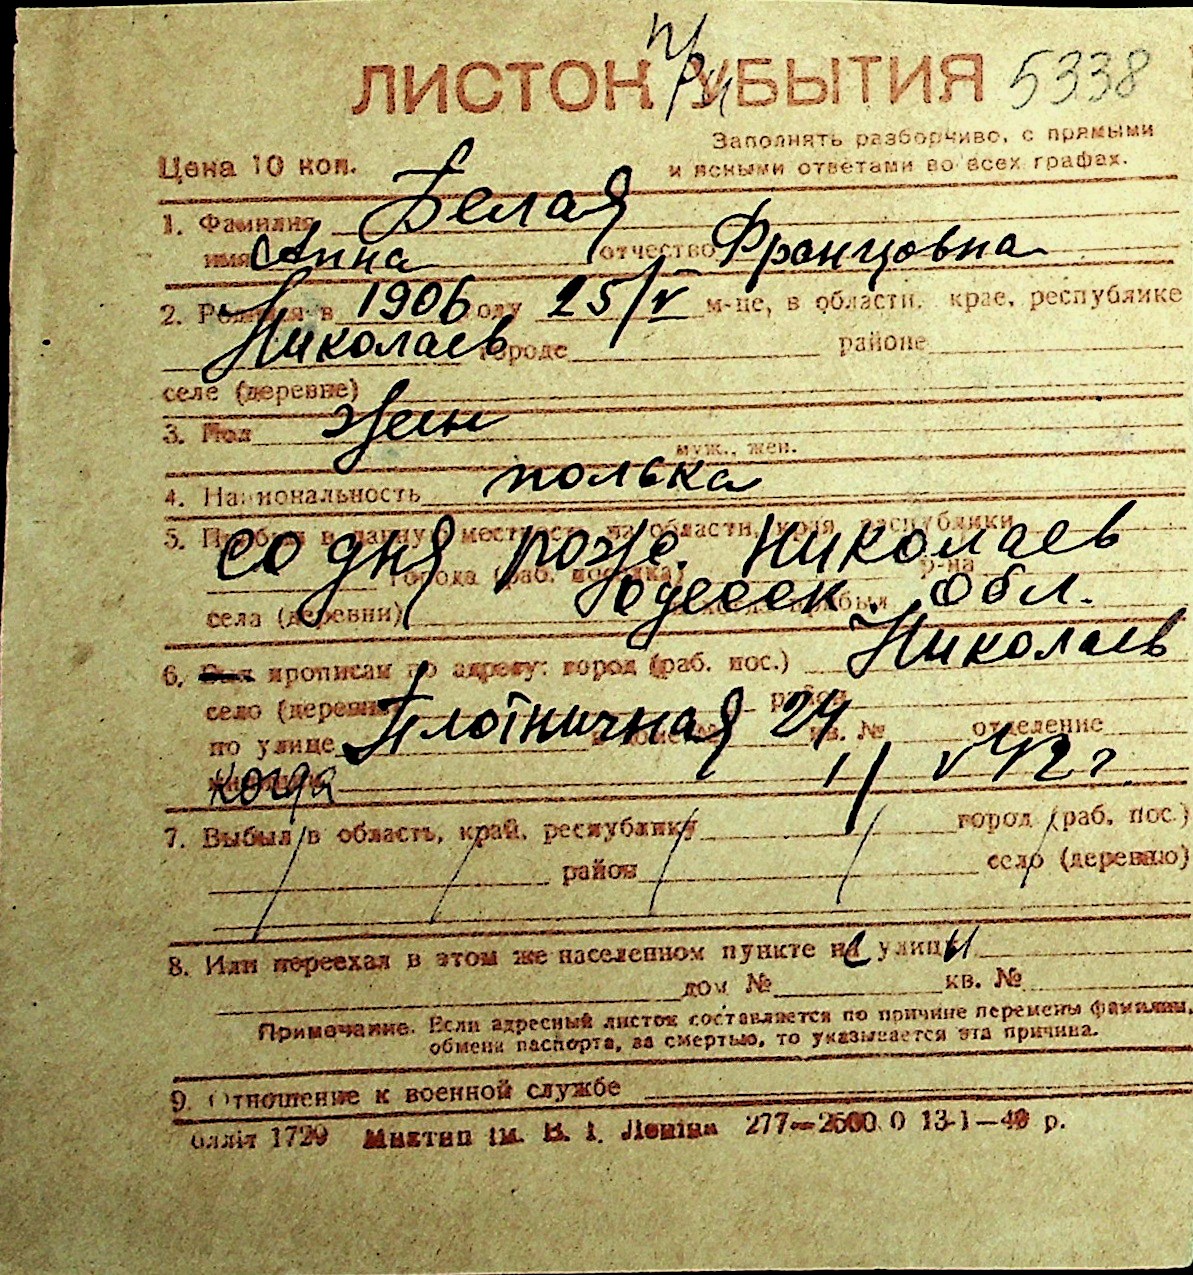 ЛИСТОК УБЫТИЯ при 5338
Заполнять разборчиво, с прямыми
Цена 10 коп. и ясными ответами во всех графах.
1. Фамилия Белая
имя Анна отчество Францовна
2. Родился в 1906 году 25/V м-це, в области, крае, республике
Николаев городе районе
селе (деревне)
3. Пол жен
муж., жен.
4. Национальность полька
5. Прибыл в данную местность из области, края, республики
со дня рожд. Николаев
города (раб. поселка) р-на
села (деревни) Одесск. обл.
6. Был прописан по адресу: город (раб. пос.) Николаев
село (деревня) район
по улице Плотничная 24 кв. № отделение
когда 11/V 42 г.
7. Выбыл в область, край, республику город (раб. пос.)
район село (деревню)
8. Или переехал в этом же населенном пункте на улицу
дом № кв. №
Примечание. Если адресный листок составляется по причине перемены фамилии,
обмена паспорта, за смертью, то указывается эта причина.
9. Отношение к военной службе
1729 ім. В. І. Леніна 277—2500 0 13-1—40 р.